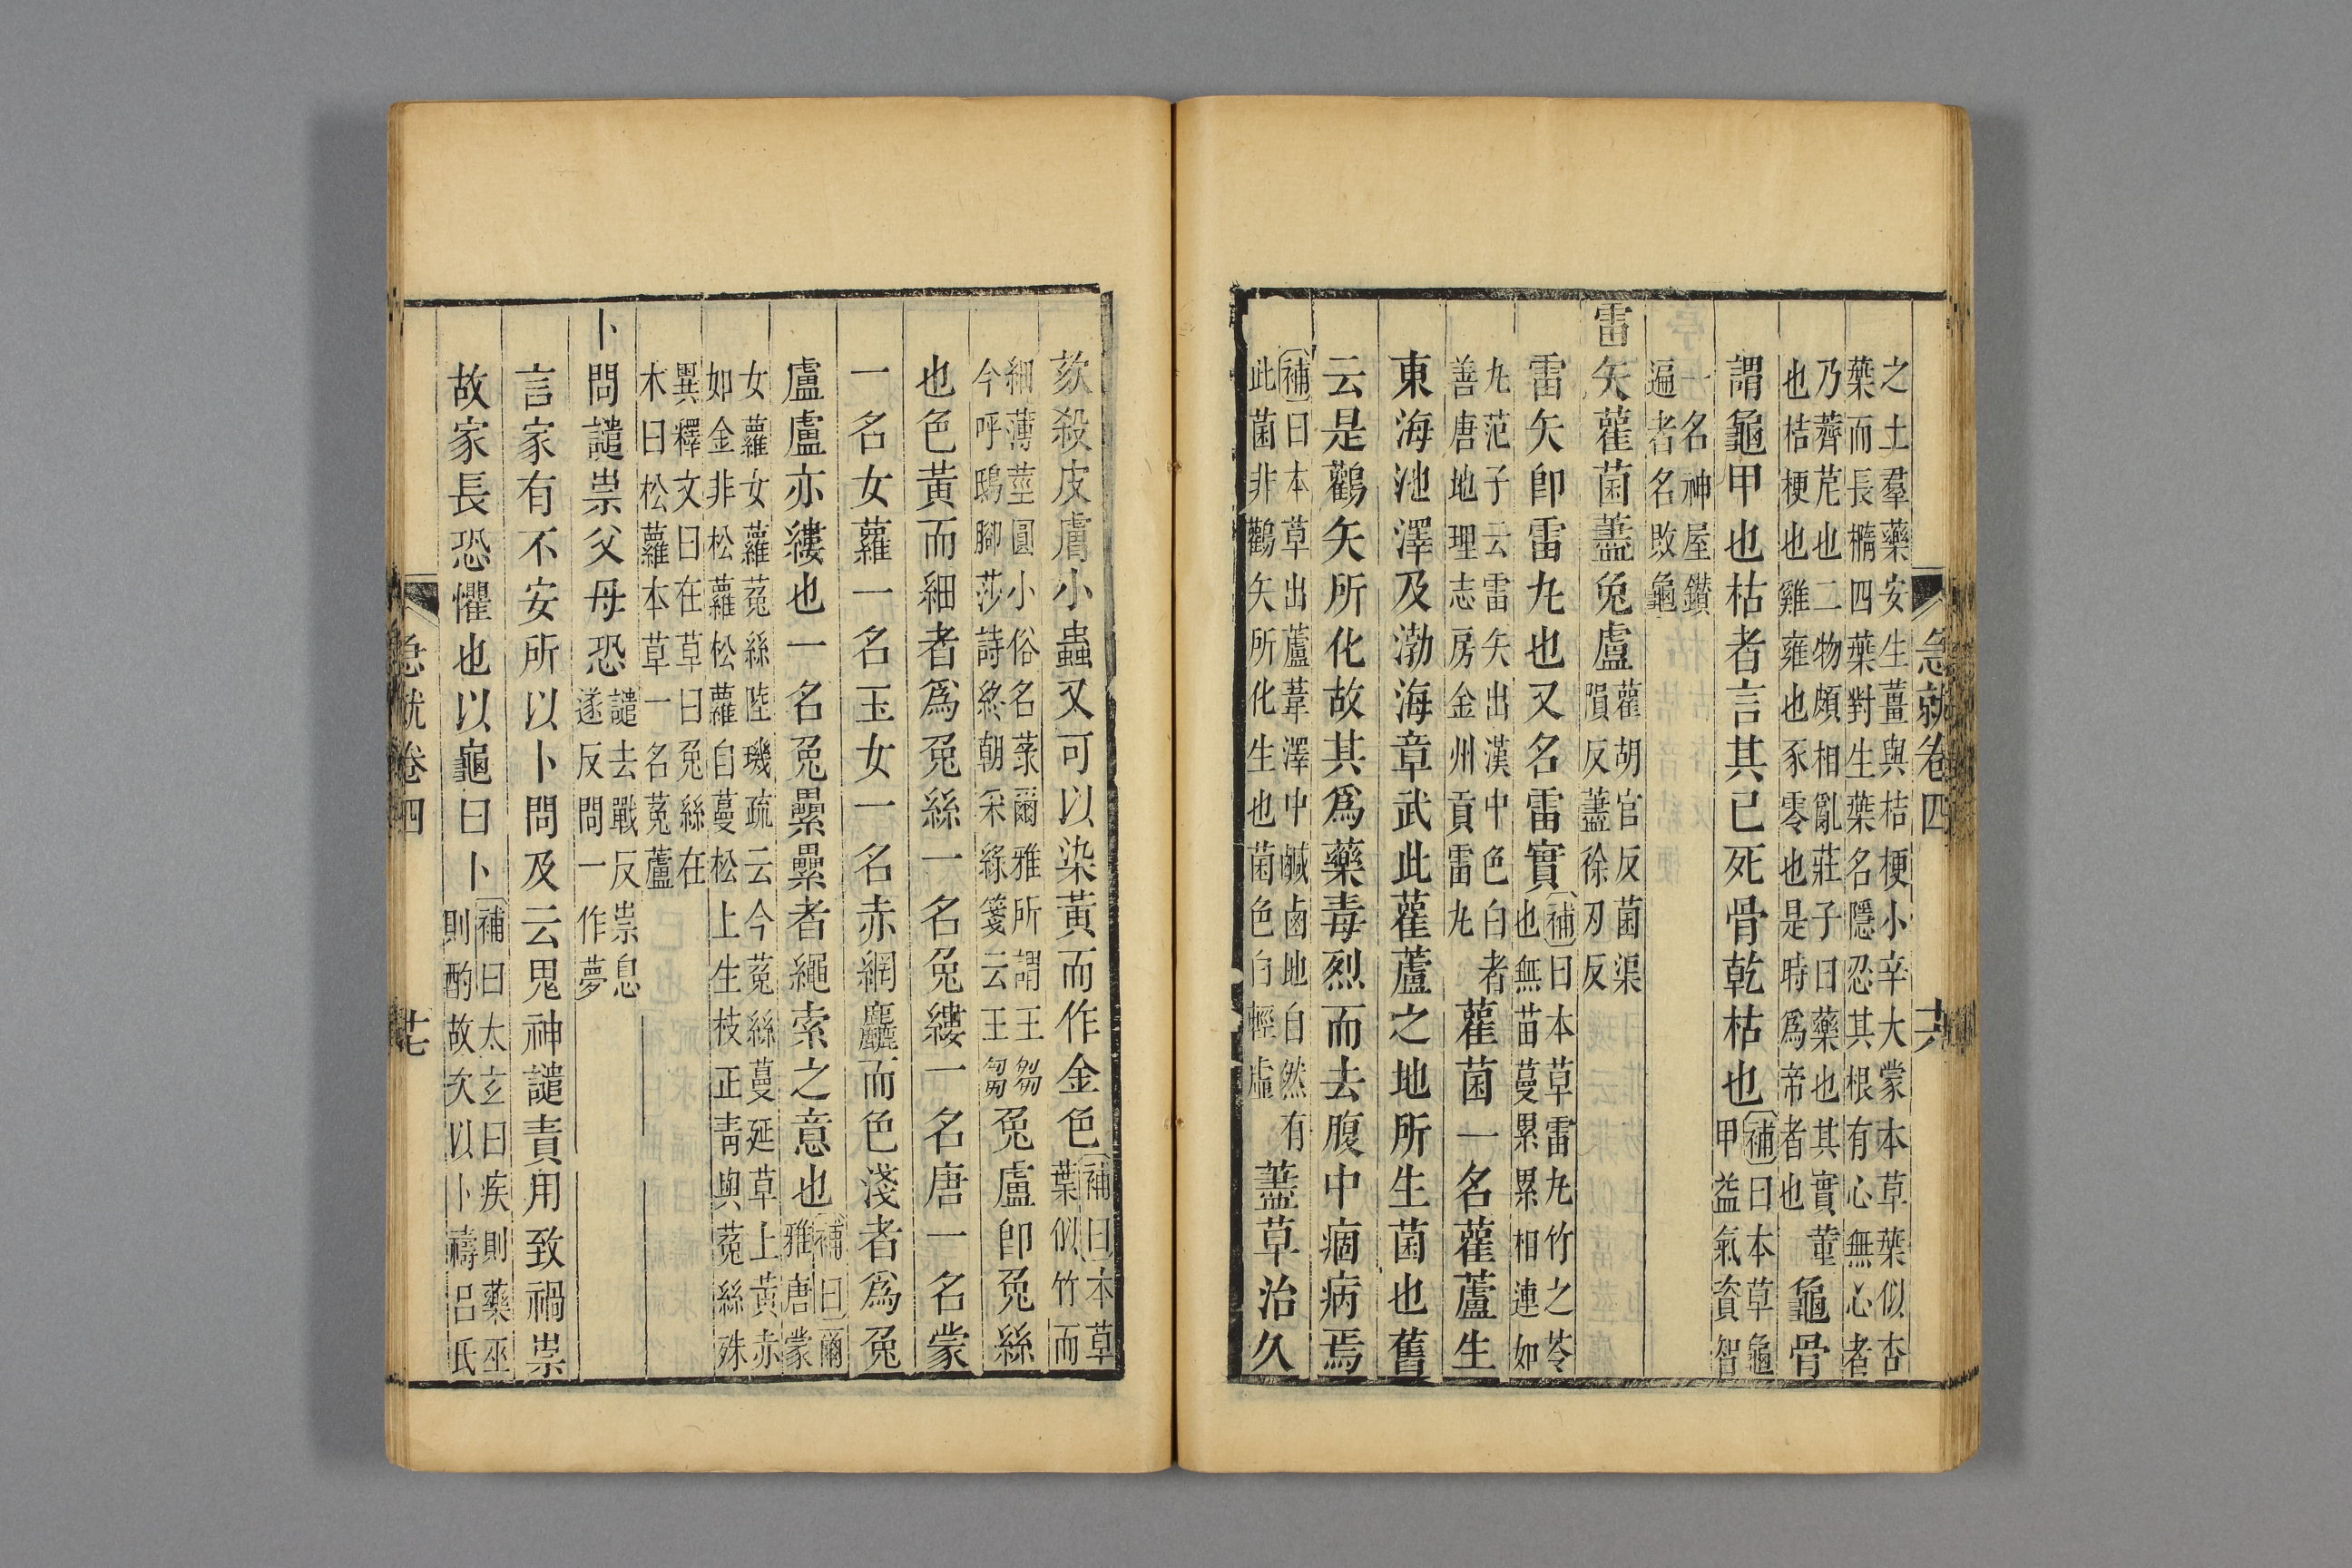 急就卷四 六
之土羣藥安生薑與桔梗小辛大蒙本草葉似杏
葉而長橢四葉對生葉名隱忍其根有心無心者
乃薺苨也二物頗相亂莊子曰藥也其實菫
也桔梗也雞雍也豕零也是時爲帝者也
龜骨
謂龜甲也枯者言其已死骨乾枯也
補曰本草龜
甲益氣資智
一名神屋鑚
遍者名敗龜
雷矢雚菌藎兔盧
雚胡官反菌渠
隕反藎徐刃反
雷矢卽雷丸也又名雷實
補曰本草雷丸竹之苓
也無苗蔓累累相連如
丸范子云雷矢出漢中色白者
善唐地理志房金州貢雷丸
雚菌一名雚蘆生
東海池澤及渤海章武此雚蘆之地所生菌也舊
云是鸛矢所化故其爲藥毒烈而去腹中痼病焉
補曰本草出蘆葦澤中鹹鹵地自然有
此菌非鸛矢所化生也菌色白輕虛
藎草治久
欬殺皮膚小蟲又可以染黃而作金色
補曰本草
葉似竹而
細薄莖圓小俗名菉爾雅所謂王芻
今呼鴟腳莎詩終朝采綠箋云王芻
兔盧卽兔絲
也色黃而細者爲兔絲一名兔縷一名唐一名蒙
一名女蘿一名玉女一名赤網麤而色淺者爲兔
盧盧亦縷也一名兔纍纍者繩索之意也
補曰爾
雅唐蒙
女蘿女蘿菟絲陸璣疏云今菟絲蔓延草上黃赤
如金非松蘿松蘿自蔓松上生枝正靑與菟絲殊
異釋文曰在草曰兔絲在
木曰松蘿本草一名菟蘆
卜問譴祟父母恐
譴去戰反祟息
遂反問一作夢
言家有不安所以卜問及云鬼神譴責用致禍祟
故家長恐懼也以龜曰卜
補曰太玄曰疾則藥巫
則酌故次以卜禱呂氏
急就卷四 七